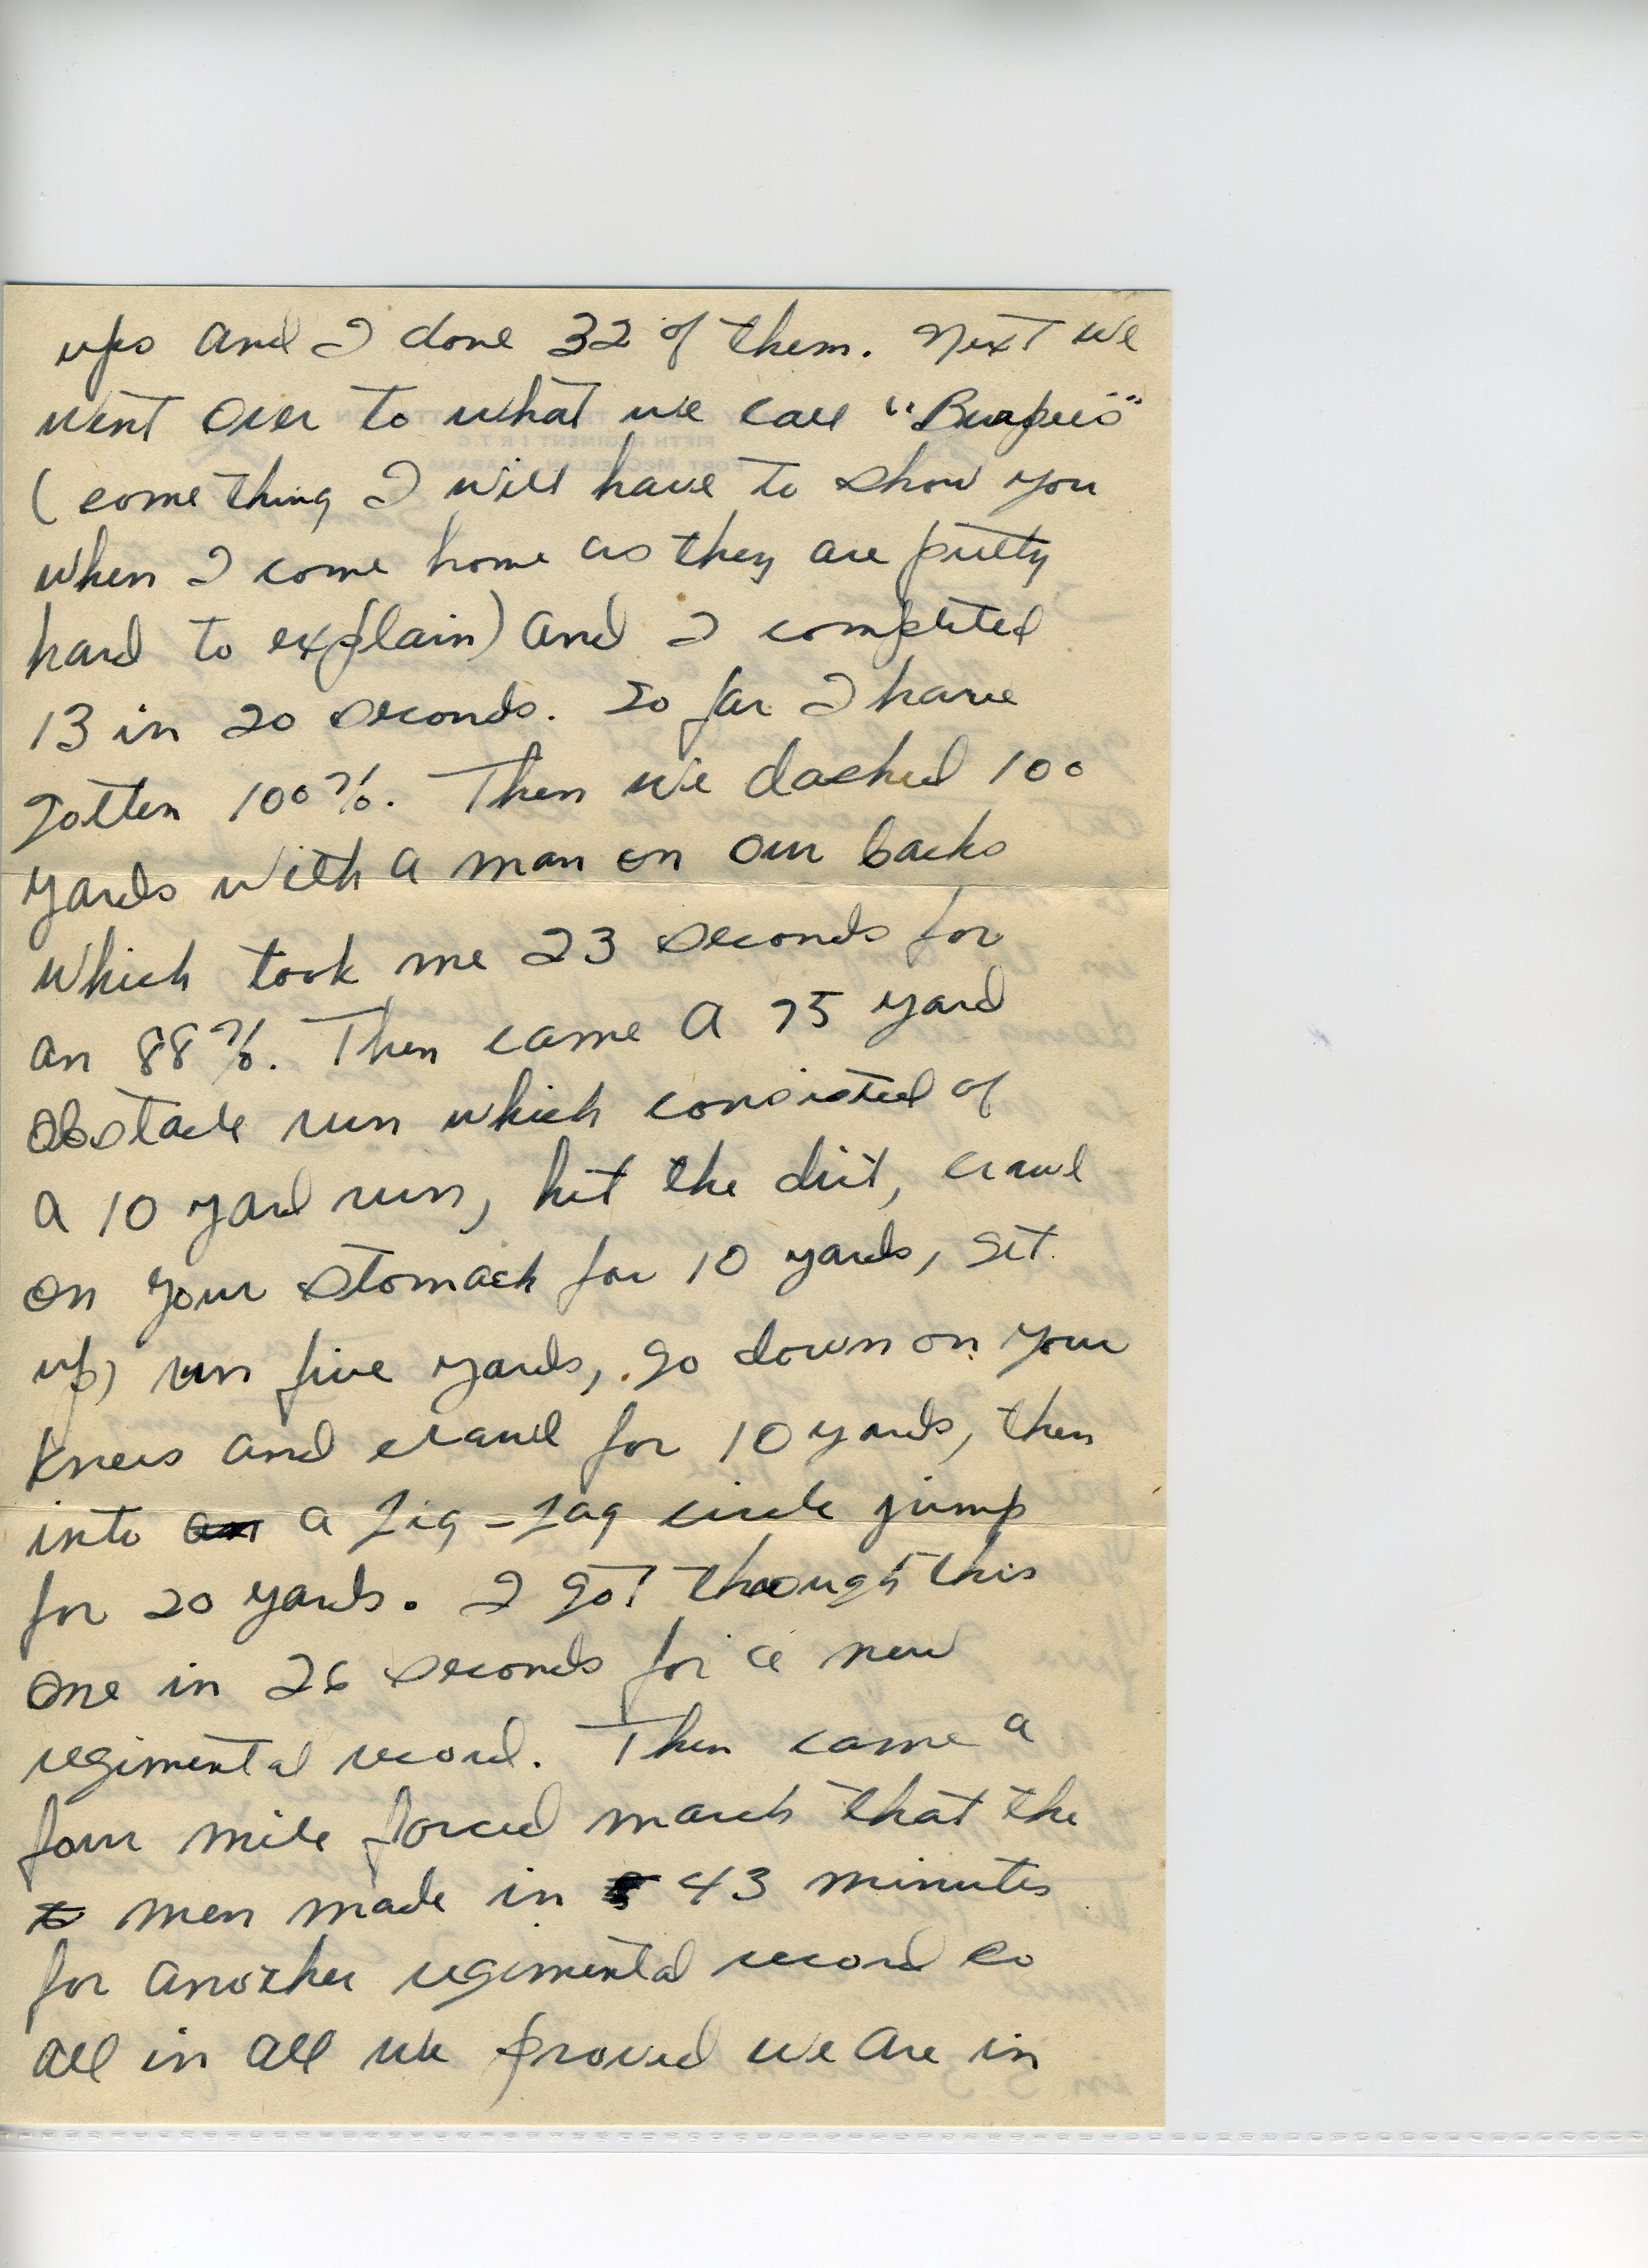 ups and I done 32 of them. Next we
went over to what we call "Burpees"
(something I will have to show you
when I come home as they are pretty
hard to explain) and I completed
13 in 20 seconds. So far I have
gotten 100%. Then we dashed 100
yards with a man on our backs
which took me 23 seconds for
an 88%. Then came a 75 yard
obstacle run which consisted of
a 10 yard run, hit the dirt, crawl
on your stomach for 10 yards, get
up, run five yards, go down on your
knees and crawl for 10 yards, then
into an a zig-zag circle jump
for 20 yards. I got through this
one in 26 seconds for a new
regimental record. Then came a
four mile forced march that the
men made in 43 minutes
for another regimental record so
all in all we proved we are in
FIFTH REGIMENT I R T C
FORT McCLELLAN, ALABAMA